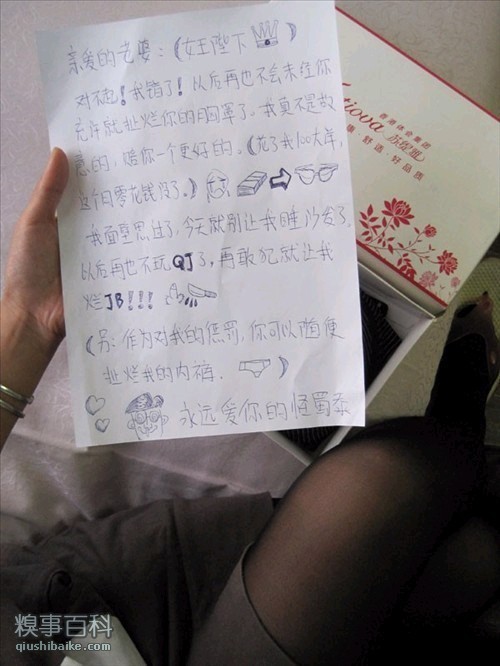 亲爱的老婆：（女王陛下）
对不起！我错了！以后再也不会未经你
允许就扯烂你的胸罩了。我真不是故
意的，赔你一个更好的。（花了我100大洋，
这个月零花钱没了。）
我面壁思过了，今天就别让我睡沙发了，
以后再也不玩QJ了，再敢犯就让我
烂JB!!!
（另：作为对我的惩罚，你可以随便
扯烂我的内裤.）
永远爱你的怪蜀黍
tiova
香港迷会集团
苏悦雅
康·舒适·好品质
糗事百科
qiushibaike.com